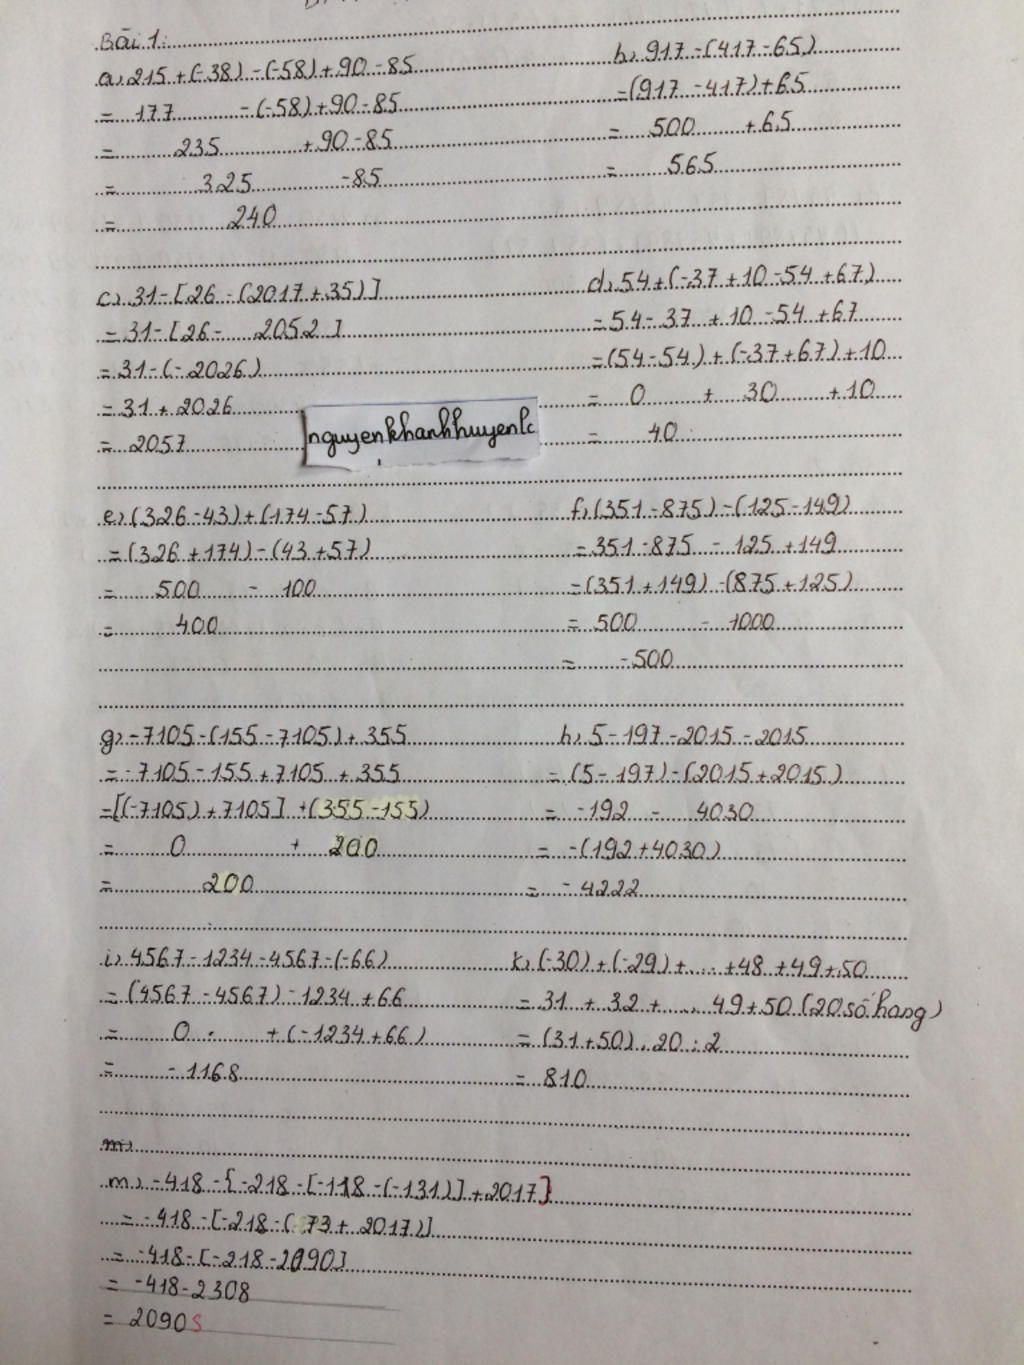 Bài 1:
a, 215 + (-38) - (-58) + 90 - 85
= 177 - (-58) + 90 - 85
= 235 + 90 - 85
= 325 - 85
= 240
b, 917 - (417 - 65)
= (917 - 417) + 65
= 500 + 65
= 565
c, 31 - [26 - (2017 + 35)]
= 31 - [26 - 2052]
= 31 - (-2026)
= 31 + 2026
= 2057
d, 54 + (-37 + 10 - 54 + 67)
= 54 - 37 + 10 - 54 + 67
= (54 - 54) + (-37 + 67) + 10
= 0 + 30 + 10
= 40
nguyenkhanhhuyenlc
e, (326 - 43) + (174 - 57)
= (326 + 174) - (43 + 57)
= 500 - 100
= 400
f, (351 - 875) - (125 - 149)
= 351 - 875 - 125 + 149
= (351 + 149) - (875 + 125)
= 500 - 1000
= -500
g, -7105 - (155 - 7105) + 355
= -7105 - 155 + 7105 + 355
= [(-7105) + 7105] + (355 - 155)
= 0 + 200
= 200
h, 5 - 197 - 2015 - 2015
= (5 - 197) - (2015 + 2015)
= -192 - 4030
= -(192 + 4030)
= -4222
i, 4567 - 1234 - 4567 - (-66)
= (4567 - 4567) - 1234 + 66
= 0 + (-1234 + 66)
= -1168
k, (-30) + (-29) + ... + 48 + 49 + 50
= 31 + 32 + ... 49 + 50 (20 số hạng)
= (31 + 50) . 20 : 2
= 810
m,
m, -418 - {-218 - [-118 - (-131)] + 2017}
= -418 - [-218 - (73 + 2017)]
= -418 - [-218 - 2090]
= -418 - 2308
= 2090 S